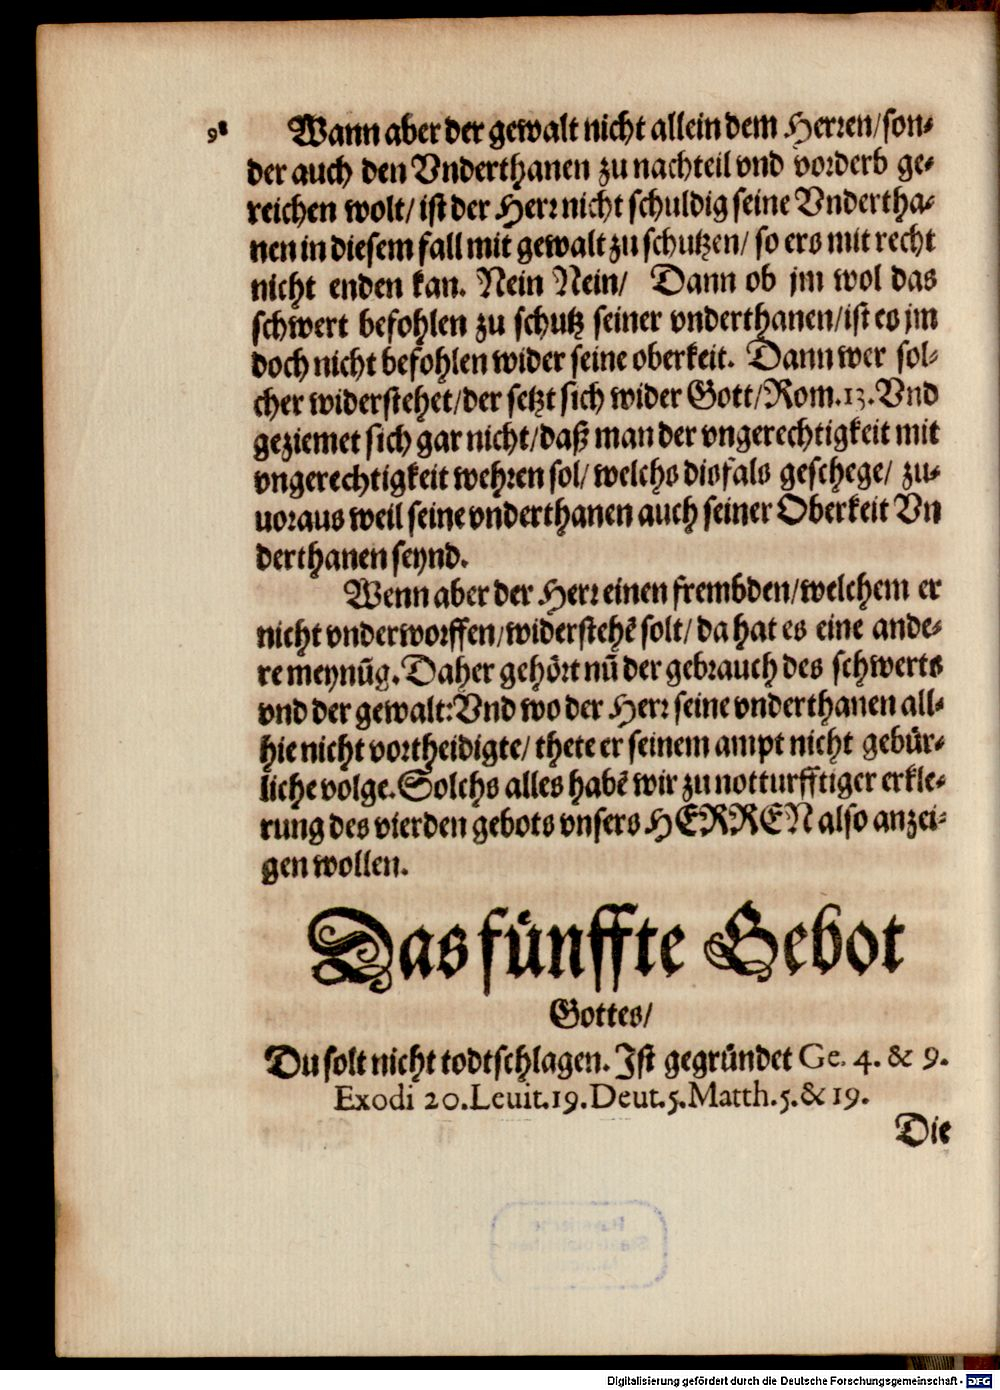 98 Wann aber der gewalt nicht allein dem Herren/son-
der auch den Vnderthanen zu nachteil vnd vorderb ge-
reichen wolt/ ist der Herr nicht schuldig seine Vndertha-
nen in diesem fall mit gewalt zu schutzen/ so ers mit recht
nicht enden kan. Nein Nein/ Dann ob jm wol das
schwert befohlen zu schutz seiner vnderthanen/ist es jm
doch nicht befohlen wider seine oberkeit. Dann wer sol-
cher widerstehet/der setzt sich wider Gott/Rom.13.Vnd
geziemet sich gar nicht/daß man der vngerechtigkeit mit
vngerechtigkeit wehren sol/ welchs disfals geschege/ zu-
uoraus weil seine vnderthanen auch seiner Oberkeit Vn
derthanen seynd.
Wenn aber der Herr einen frembden/welchem er
nicht vnderworffen/widerstehẽ solt/ da hat es eine ande-
re meynũg. Daher gehört nũ der gebrauch des schwerts
vnd der gewalt: Vnd wo der Herr seine vnderthanen all-
hie nicht vortheidigte/ thete er seinem ampt nicht gebür-
liche volge. Solchs alles habẽ wir zu notturfftiger erkle-
rung des vierden gebots vnsers HERREN also anzei-
gen wollen.
Das fünffte Gebot
Gottes/
Du solt nicht todtschlagen. Ist gegründet Ge. 4. & 9.
Exodi 20.Leuit.19.Deut.5.Matth.5.& 19.
Die
Digitalisierung gefördert durch die Deutsche Forschungsgemeinschaft - DFG